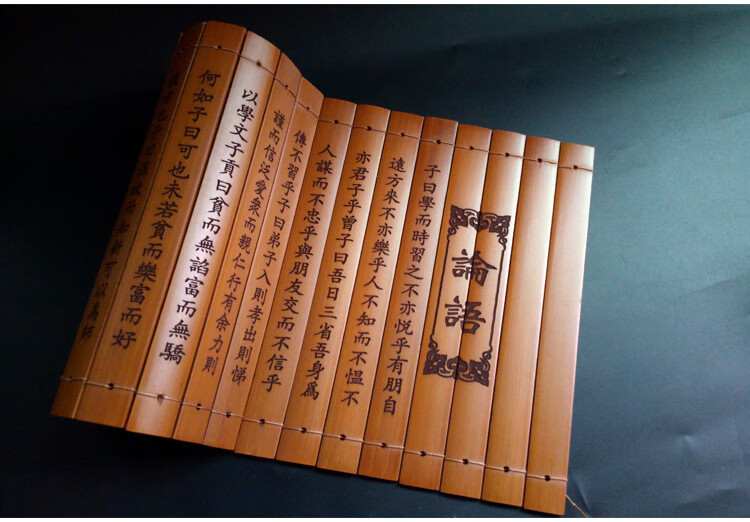 論語
子曰學而時習之不亦悅乎有朋自
遠方來不亦樂乎人不知而不慍不
亦君子乎曾子曰吾日三省吾身為
人謀而不忠乎與朋友交而不信乎
傳不習乎子曰弟子入則孝出則悌
謹而信泛愛衆而親仁行有余力則
以學文子貢曰貧而無諂富而無驕
何如子曰可也未若貧而樂富而好
可以為師